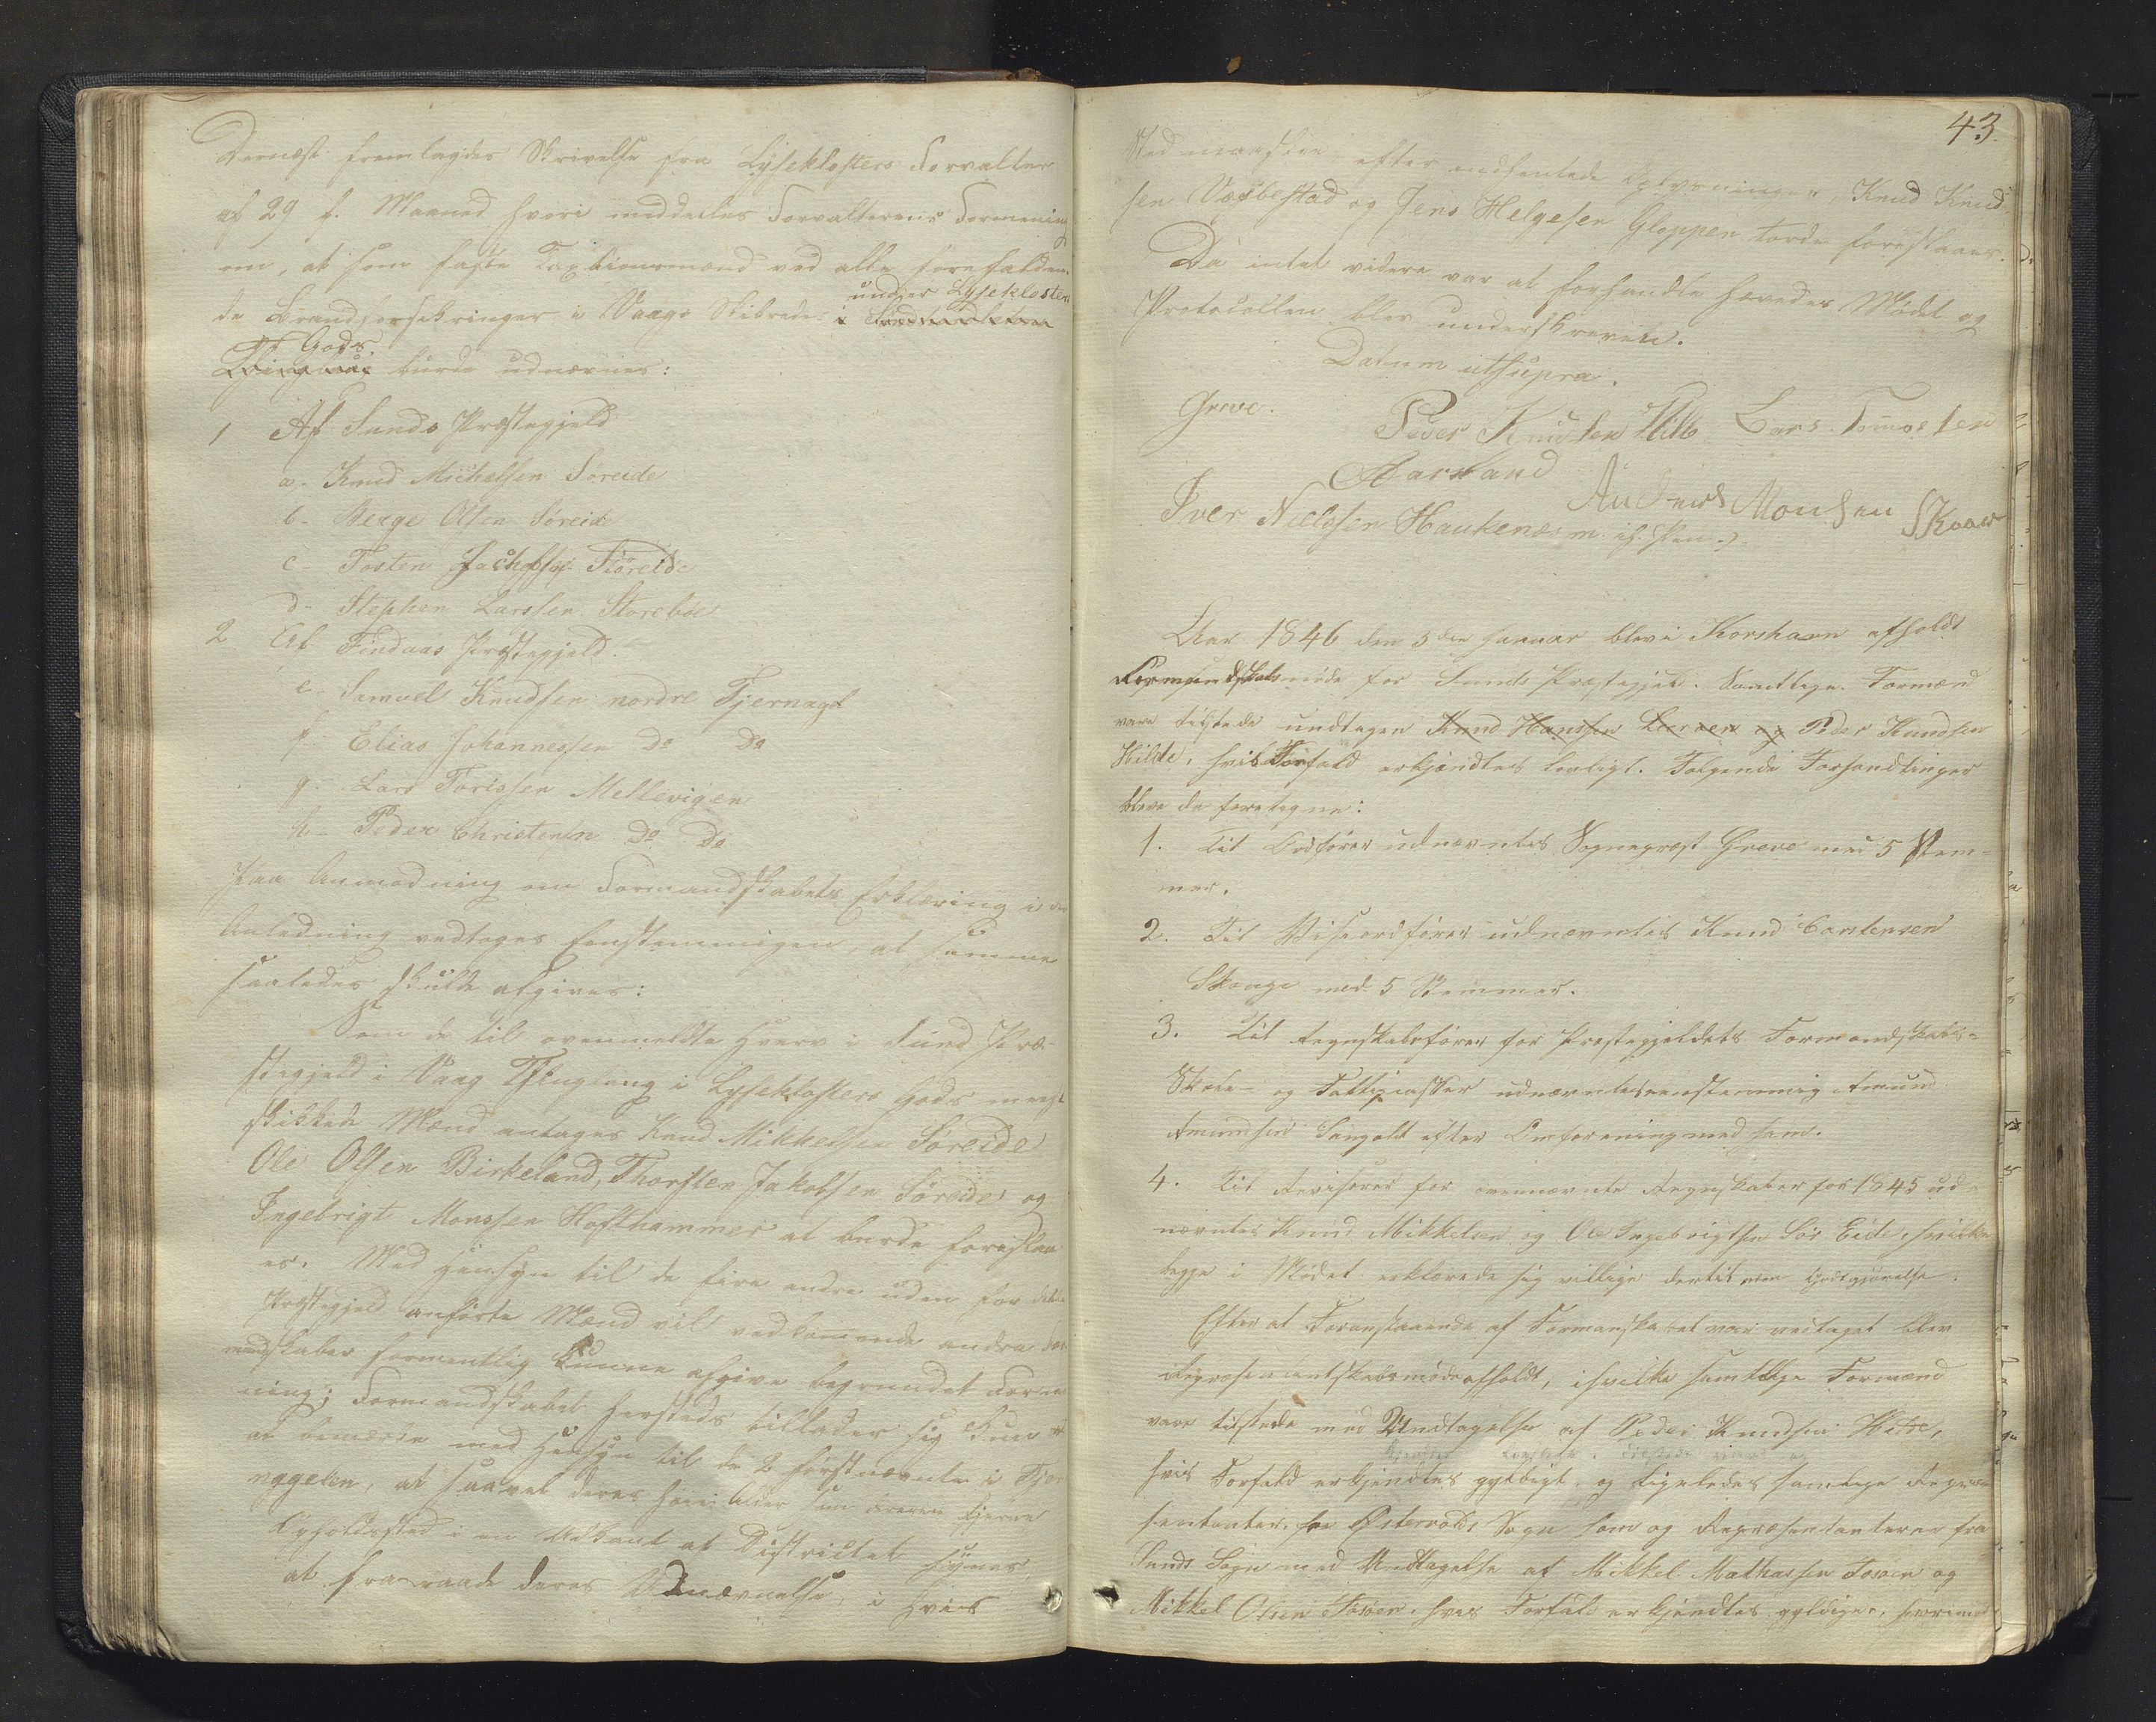 Dernæst fremlagdes Skrivelse fra LysekLosters Forvalter
af 29 f. Maaned hvori meddeeles Forvalterens Formening
om, at som faste Taxtionsmænd ved alle forefalden-
de Brandforsikringer i Vaags Skibrede i
under Lyseklosters
Gods
burde udnævnes:
1 Af Sunds Præstegjeld
a- Knud Michelsen Søreide
b- Berge Olsen Søreide
c- Tosten Jachobsen Søreide
d- Stephen Larssen Storebøe
2 Af Findaas Præstegjeld.
e- Samuel Knudsen nordre Tjernagel
f- Elias Johannessen Do Do
g- Lars Torissen Mellevigen
h- Peder Christensen Do Do
Paa Anmodning om Formandskabets Erklæring i den
Anledning vedtoges Eenstemmigen, at samme
saaledes skulde afgives:
Som de til ovenmeldte Hverv i Sund Præ-
stegjeld i Vaag Thinglaug i Lyseklosters Gods meest
skikkede Mænd antages Knud Mikkelsen Søreide
Ole Olsen Birkeland, Thorsten Jakobsen Søreide og
Ingebrigt Monssen Hofthammer at burde foreslaa-
es. Med Hensyn til de fire andre uden for dette
Præstegjeld anførte Mænd vil vedkommende andre For-
mandskaber formentlig kunne afgive begrundet Forme-
ning; Formandskabet hersteds tillader sig kun
at bemærke med Hensyn til de 2 førstnævnte i Tjer-
naggelen, at saavel deres høie Alder som deres fjerne
Opholdssted i en Udkant af Districtet synes
at fraraade deres Udnævnelse i hvis
43.
Sted maaskee efter indhentede Oplysninger, Knud Knud-
sen Vorbestad og Jens Helgesen Gloppen torde foreslaaes.
Da intet videre var at forhandle hævedes Mødet og
Protocollen blev underskreven.
Datum utsupra.
Greve. Peder Knudsen Hille Lars Tommossen
Aarland Anders Monsen Skaar
Iver Nielssen Haukenæs m. if. Pen.
Aar 1846 den 5de Januar blev i Korshavn afholdt
Formandskabsmøde for Sunds Præstegjeld. Samtlige Formænd
vare tilstede undtagen Knud Hanssen Lerøen og Peder Knudsen
Hilde, hvis Forfald erkjendtes lovligt. Følgende Forhandlinger
bleve da foretagne:
1. Til Ordfører udnævntes Sognepræst Greve med 5 Stem-
mer.
2. Til Viseordfører udnævntes Knud Carstensen
Skoge med 5 Stemmer.
3. Til Regnskabsfører for Præstegjeldets Formandskabs-
Skole- og Fattigcasser udnævntes eenstemmig Amund
Amundsen Sangolt efter Omforening med ham.
4. Til Revisorer for ovennævnte Regnskaber for 1845 ud-
nævntes Knud Mikkelsen og Ole Ingebrigtsen Sør Eide, hvilke
begge i Mødet erklærede sig villige dertil uden Godtgjørelse.
Efter at Foranstaaende af Formanskabet var vedtaget blev
Repræsentantskabsmøde afholdt, i hvilke samtlige Formænd
vare tilstede med Undtagelse af Peder Knudsen Hilde,
hvis Forfald erkjendtes gyldigt, og ligeledes samtlige Repræ-
sentanter for Østervolds Sogn som og Repræsentanterne fra
Sunds Sogn med Undtagelse af Mikkel Mathassen Tosøen og
Mikkel Olsen Tosøen, hvis Forfald erkjendtes gyldige, hvorimod